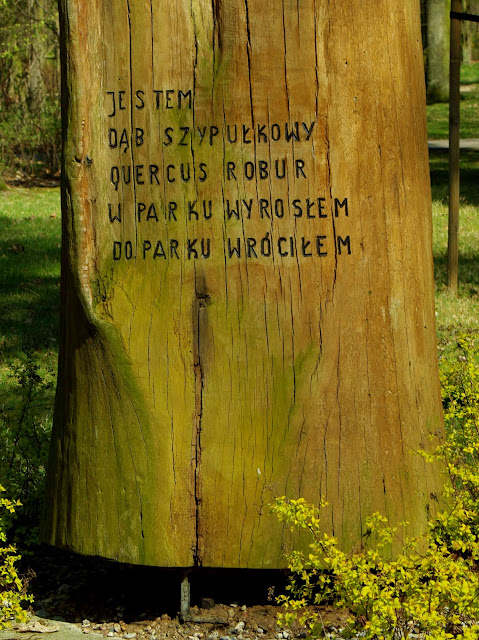 JESTEM
DĄB SZYPUŁKOWY
QUERCUS ROBUR
W PARKU WYROSŁEM
DO PARKU WRÓCIŁEM